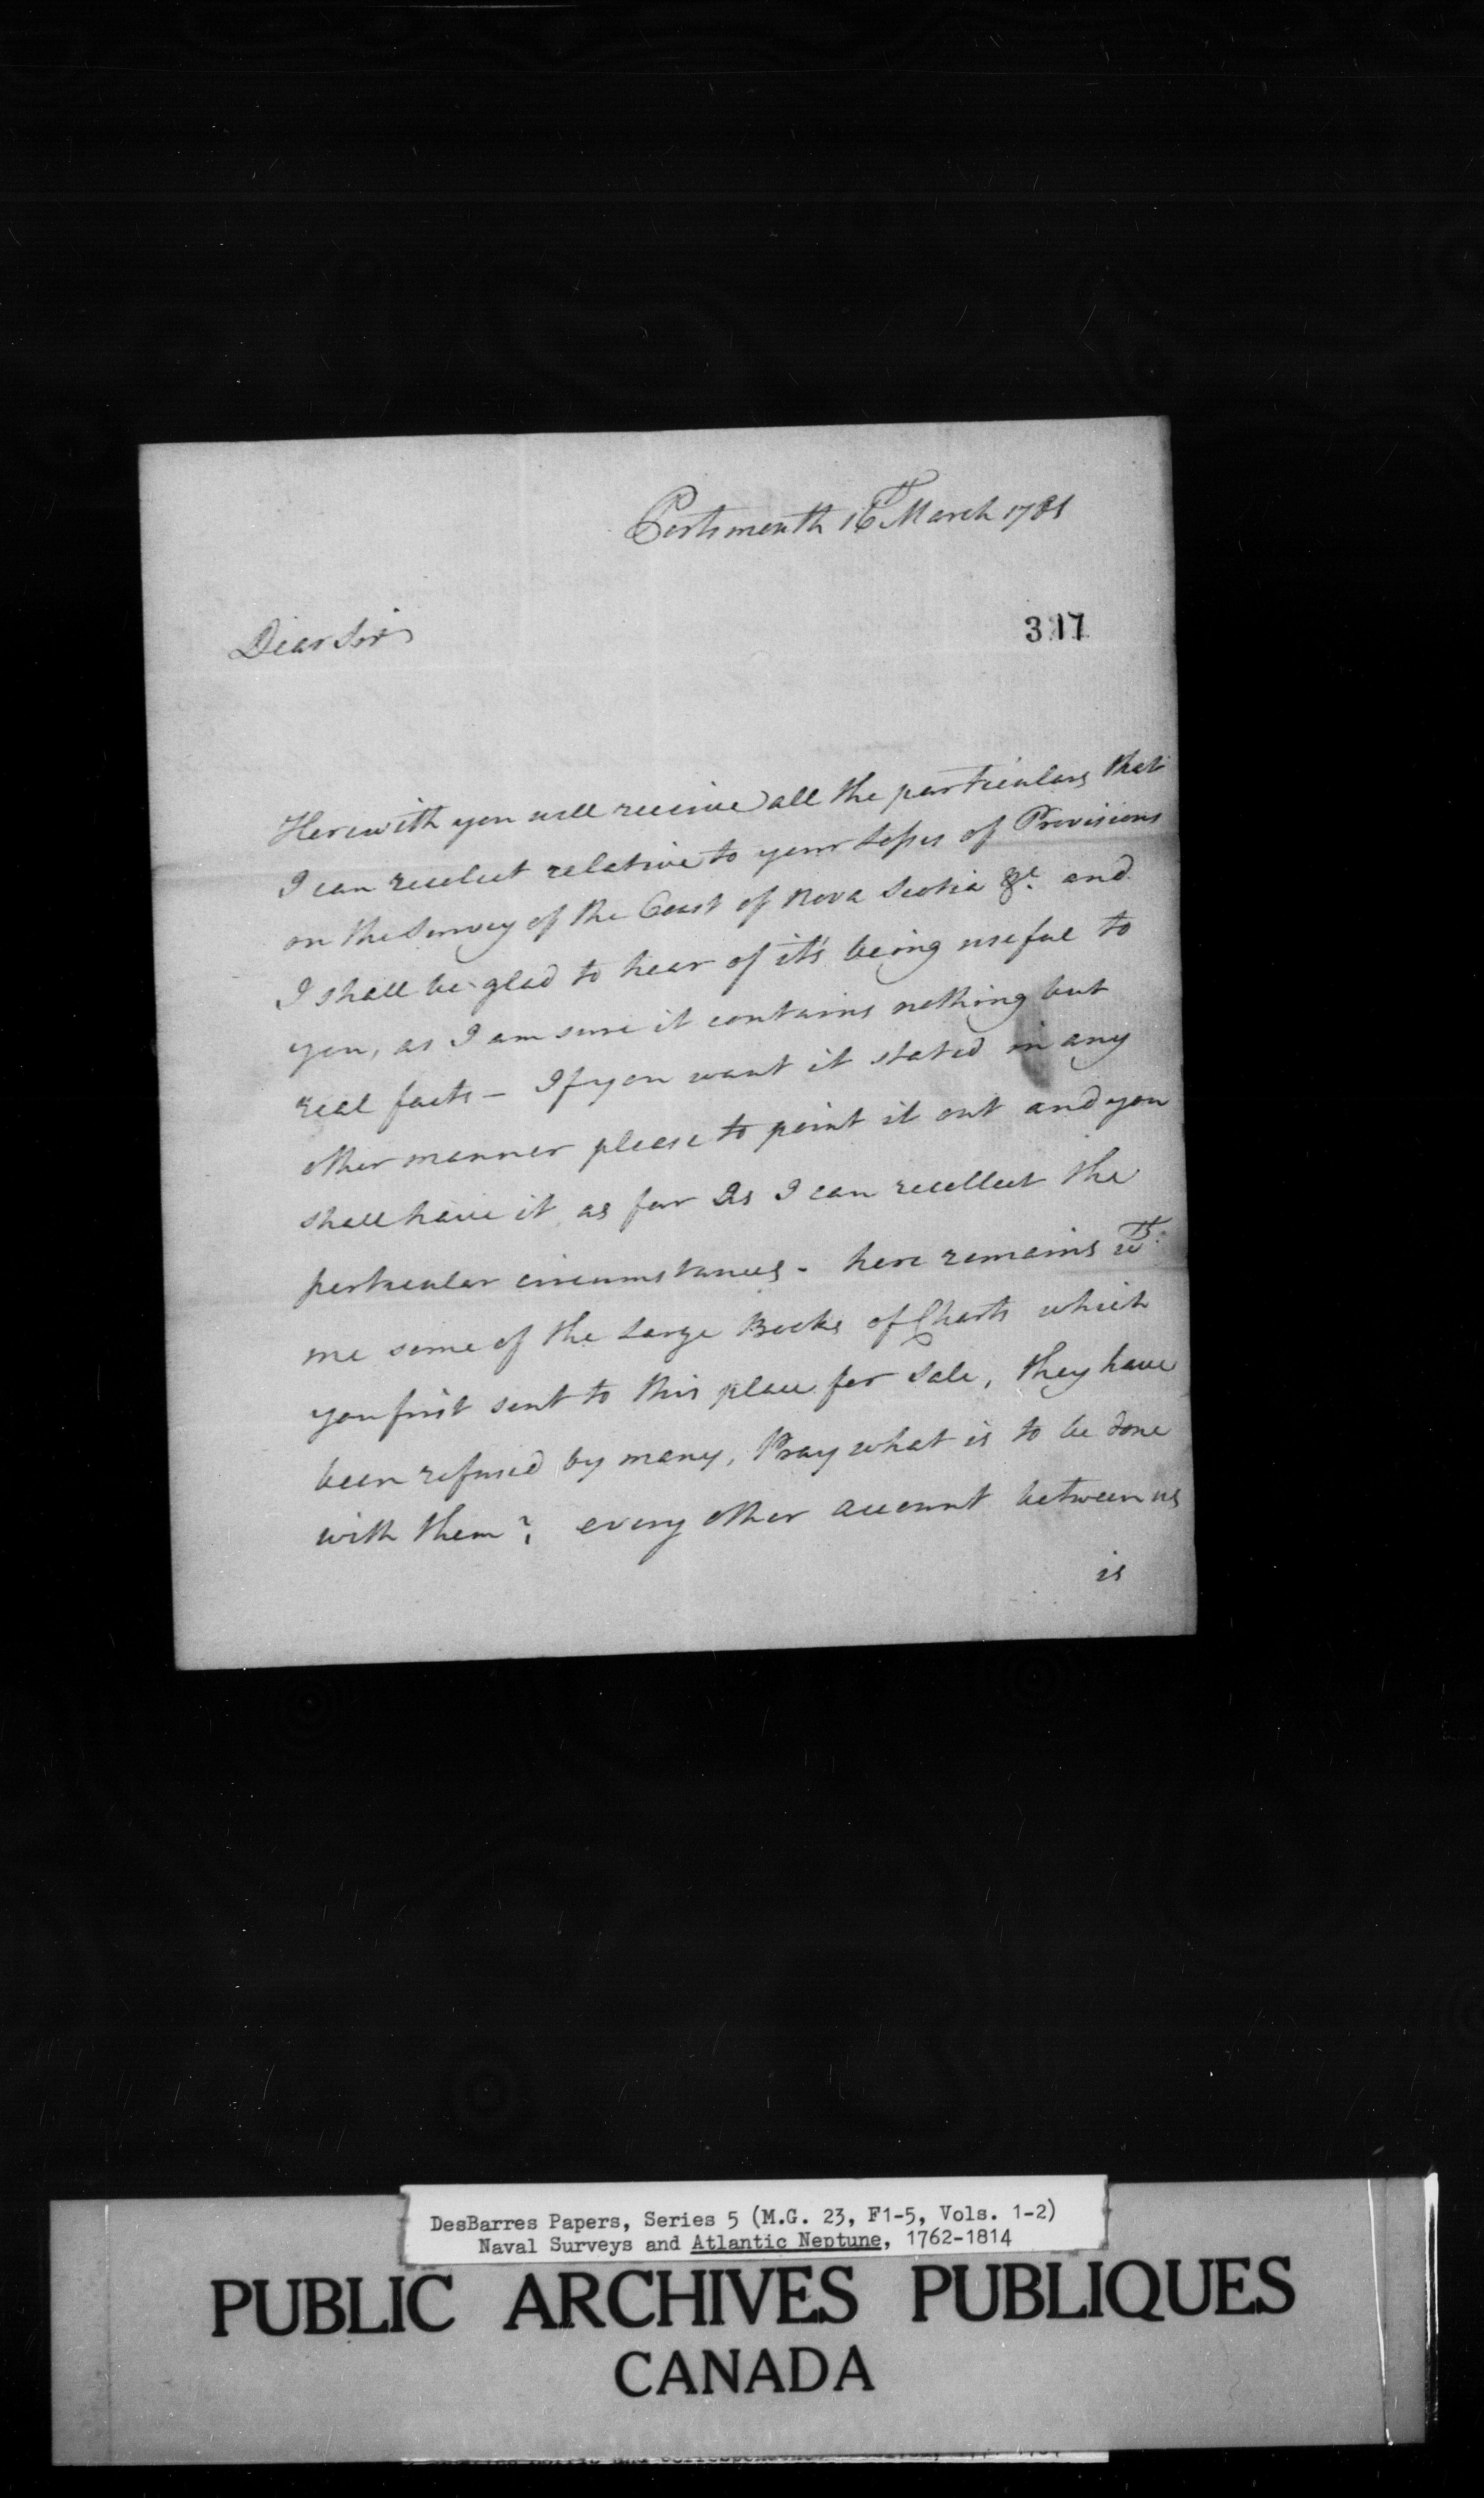 Portsmouth 16th March 1781
317
Dear Sir
Herewith you will receive all the particulars that
I can recolect relative to your Losses of Provisions
on the Survey of the Coast of Nova Scotia &c. and
I shall be glad to hear of it's being useful to
you, as I am sure it contains nothing but
real facts - If you want it stated in any
other manner please to point it out and you
shall have it as far as I can recollect the
perticular circumstances - here remains wth.
me some of the Large Books of Charts which
you first sent to this place for sale, they have
been refused by many, Pray what is to be done
with them? every other account between us
is
DesBarres Papers, Series 5 (M.G. 23, F1-5, Vols. 1-2)
Naval Surveys and Atlantic Neptune, 1762-1814
PUBLIC ARCHIVES PUBLIQUES
CANADA